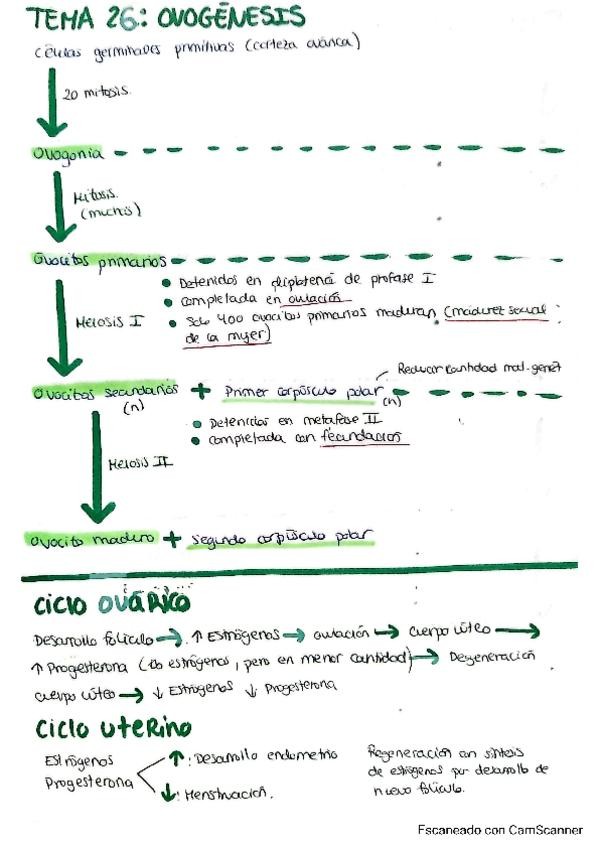 TEMA 26: OVOGÉNESIS
Células germinales primitivas (corteza ovárica)
20 mitosis.
Ovogonia
Mitosis.
(muchas)
Ovocitos primarios
Detenidos en diplotena de profase I
Completada en ovulación
Meiosis I
Solo 400 ovocitos primarios maduran (madurez sexual
de la mujer)
Reducir cantidad mat. genét
Ovocitos secundarios + Primer corpúsculo polar
(n) (n)
Detenidos en metafase II
completada con fecundación
Meiosis II
Ovocito maduro + segundo corpúsculo polar
Ciclo ovárico
Desarrollo folículo → ↑ Estrógenos → ovulación → cuerpo lúteo →
↑ Progesterona ( estrógenos, pero en menor cantidad) → Degeneración
cuerpo lúteo → ↓ Estrógenos ↓ Progesterona
Ciclo uterino
Estrógenos
Progesterona
↑: Desarrollo endometrio
↓: Menstruación.
Regeneración con síntesis
de estrógenos por desarrollo de
nuevo folículo.
Escaneado con CamScanner